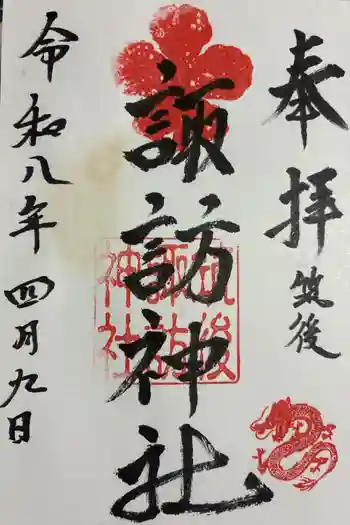 奉拝
筑後
諏訪神社
筑後
諏訪
神社
令和八年四月九日